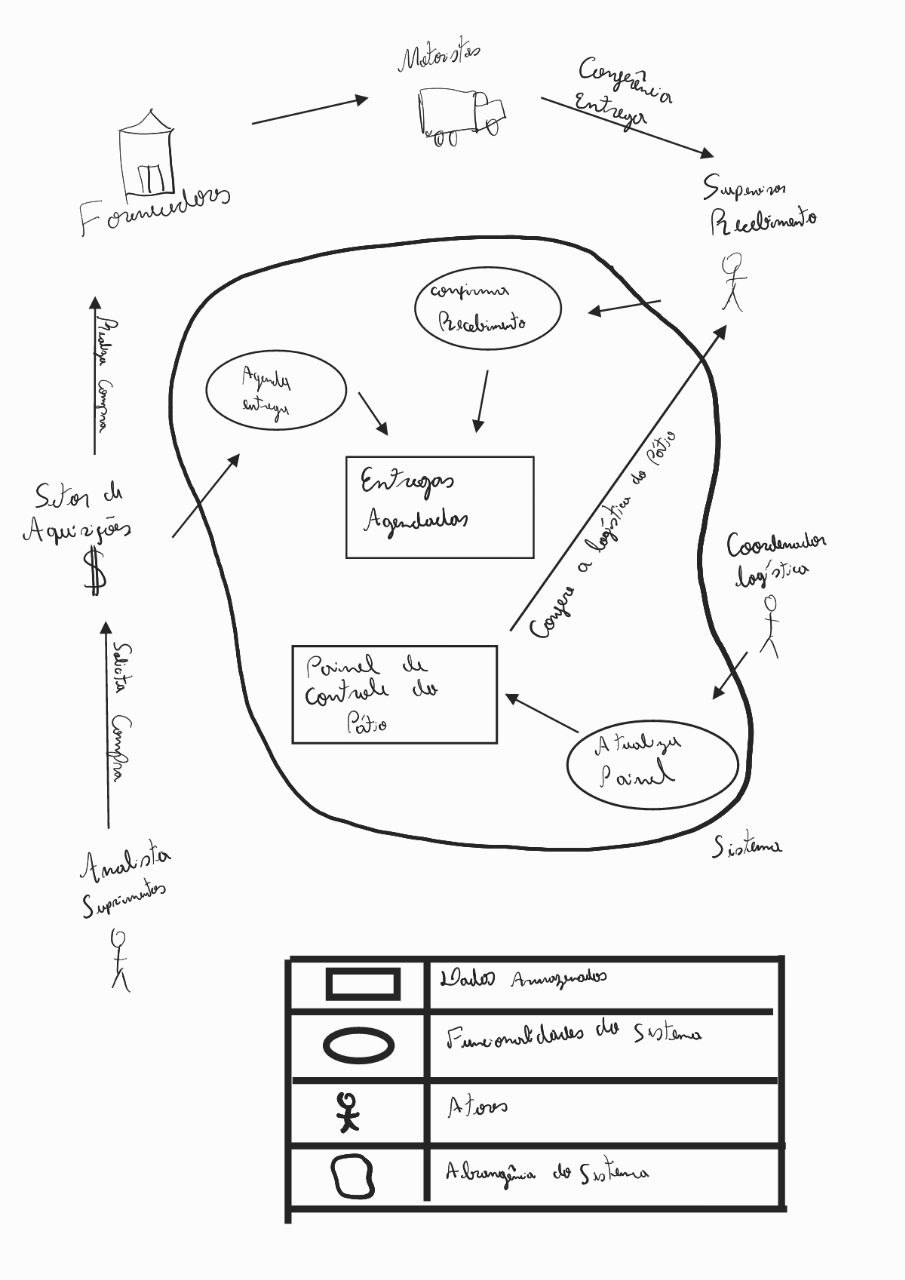 Motoristas
Conferência
Entrega
Fornecedores
Supervisor
Recebimento
confirma
Recebimento
Realiza Compra
Agenda
entrega
Entregas
Agendadas
Setor de
Aquisições
$
Confere a logística do Pátio
Coordenador
logística
Solicita Compra
Painel de
Controle do
Pátio
Atualiza
Painel
Sistema
Analista
Suprimentos
Dados Armazenados
Funcionalidades do Sistema
Atores
Abrangência do Sistema